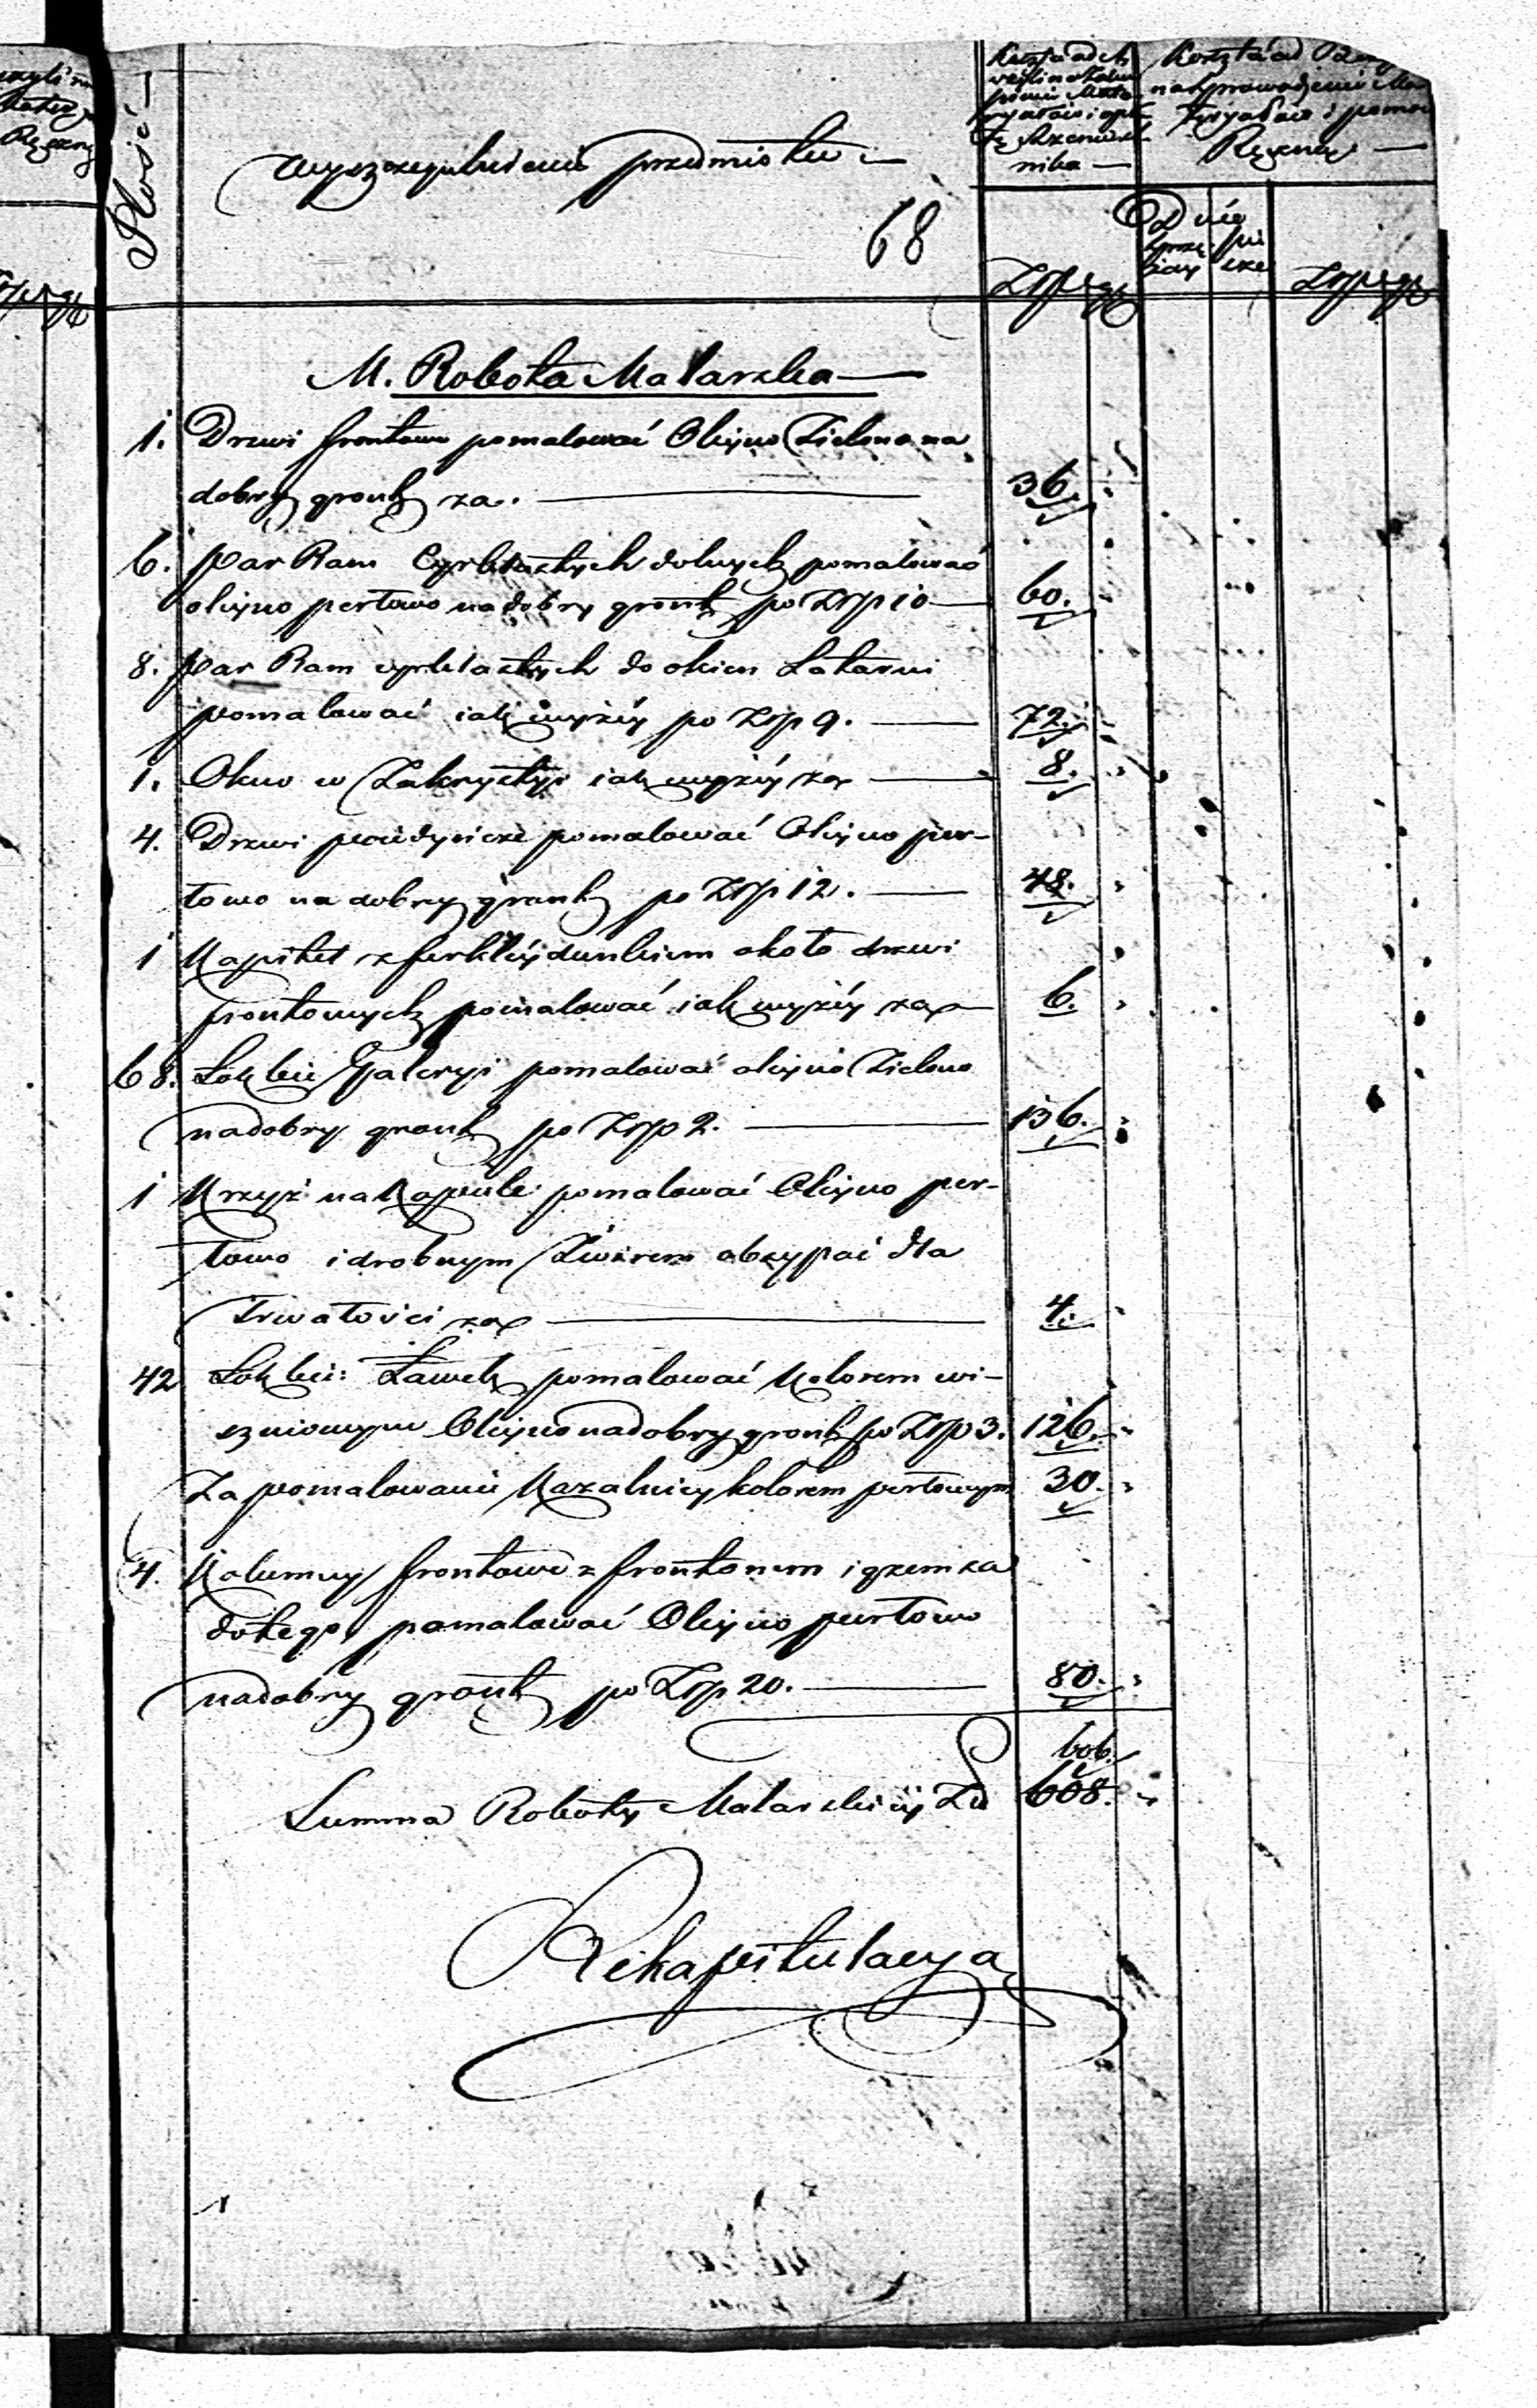 Ilość
Wyszczegulnienie przedmiotu
68
nika
Ręczney
Od dnia
sprzę pie
żay sze
Złp gr
Złp gr
M. Robota Malarska
1. Drzwi frontowe pomalować Oleyno Zielono na
dobry gront za. 36.
6. par Ram Cyrklastych dolnych pomalować
oleyno perłowo na dobry gront po Złp 10 60.
8. par Ram cyrklastych do okien Latarni
pomalować iak wyżéy po Złp 9. 72.
1. Okno w Zakrystyi iak wyżéy za 8.
4. Drzwi poiedyńcze pomalować Oleyno per-
łowo na dobry gront po Złp 12. 48.
1 Kapitel z ferkleydunkiem około drzwi
frontowych pomalować iak wyżéy za 6.
68. Łokci Galeryi pomalować oleyno Zielono
na dobry gront po Złp 2. 136.
1 Krzyż na Kopule pomalować Oleyno per-
łowo i drobnym Żwirem obsypać dla
Trwałości za 4.
42 Łokci: Ławek pomalować Kolorem wi-
szniowym Oleyno na dobry gront po Złp 3. 126.
Za pomalowanie Kazalnicy kolorem perłowym 30.
4. Kolumny frontowe z frontonem i gzemsa
do tego pomalować Oleyno perłowo
na dobry gront po Złp 20. 80.
606.
Summa Roboty Malarskiéy Zł 608.
Rekapitulacya